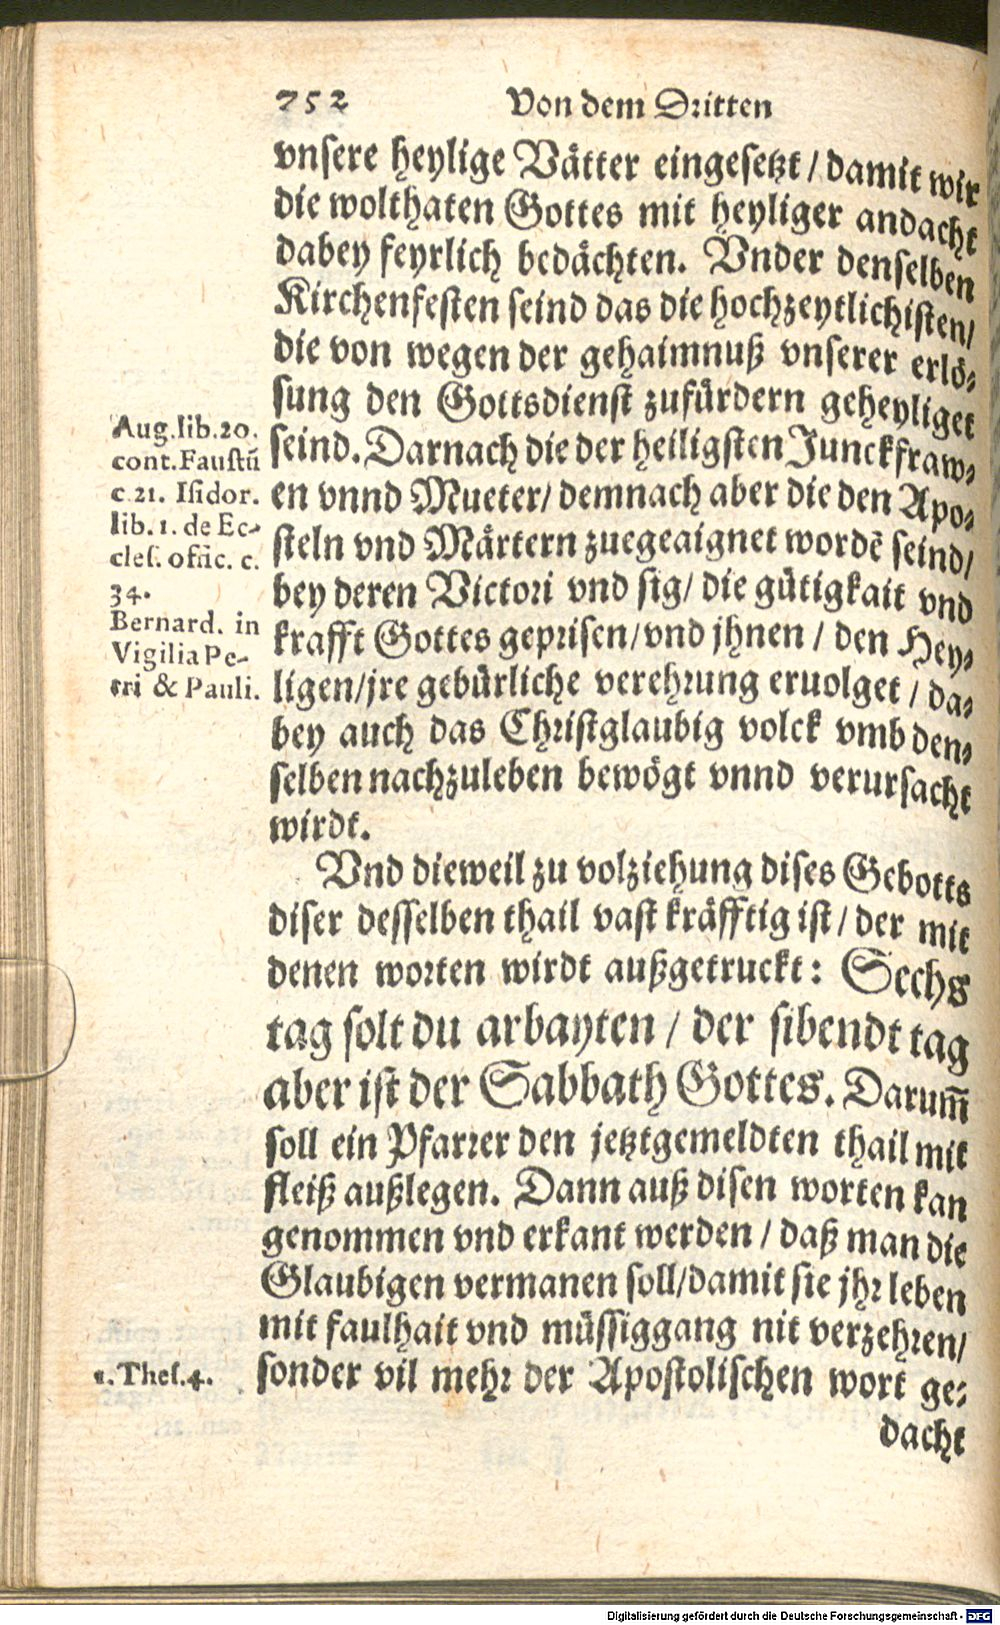 752 Von dem Dritten
vnsere heylige Vätter eingesetzt / damit wir
die wolthaten Gottes mit heyliger andacht
dabey feyrlich bedächten. Vnder denselben
Kirchenfesten seind das die hochzeytlichisten/
die von wegen der gehaimnuß vnserer erlö-
sung den Gottsdienst zufürdern geheyliget
seind. Darnach die der heiligsten Junckfraw-
en vnnd Mueter/ demnach aber die den Apo-
steln vnd Märtern zuegeaignet wordẽ seind/
bey deren Victori vnd sig/ die gütigkait vnd
krafft Gottes geprisen/vnd jhnen / den Hey-
ligen/jre gebürliche verehrung eruolget / da-
bey auch das Christglaubig volck vmb den-
selben nachzuleben bewögt vnnd verursacht
wirdt.
Aug.lib.20.
cont.Faustũ
c.21. Isidor.
lib. 1. de Ec-
cles. offic. c.
34.
Bernard. in
Vigilia Pe-
tri & Pauli.
Vnd dieweil zu volziehung dises Gebotts
diser desselben thail vast kräfftig ist / der mit
denen worten wirdt außgetruckt: Sechs
tag solt du arbayten / der sibendt tag
aber ist der Sabbath Gottes. Darum̃
soll ein Pfarrer den jetztgemeldten thail mit
fleiß außlegen. Dann auß disen worten kan
genommen vnd erkant werden / daß man die
Glaubigen vermanen soll/damit sie jhr leben
mit faulhait vnd müssiggang nit verzehren/
sonder vil mehr der Apostolischen wort ge-
dacht
1. Thes.4.
Digitalisierung gefördert durch die Deutsche Forschungsgemeinschaft - DFG